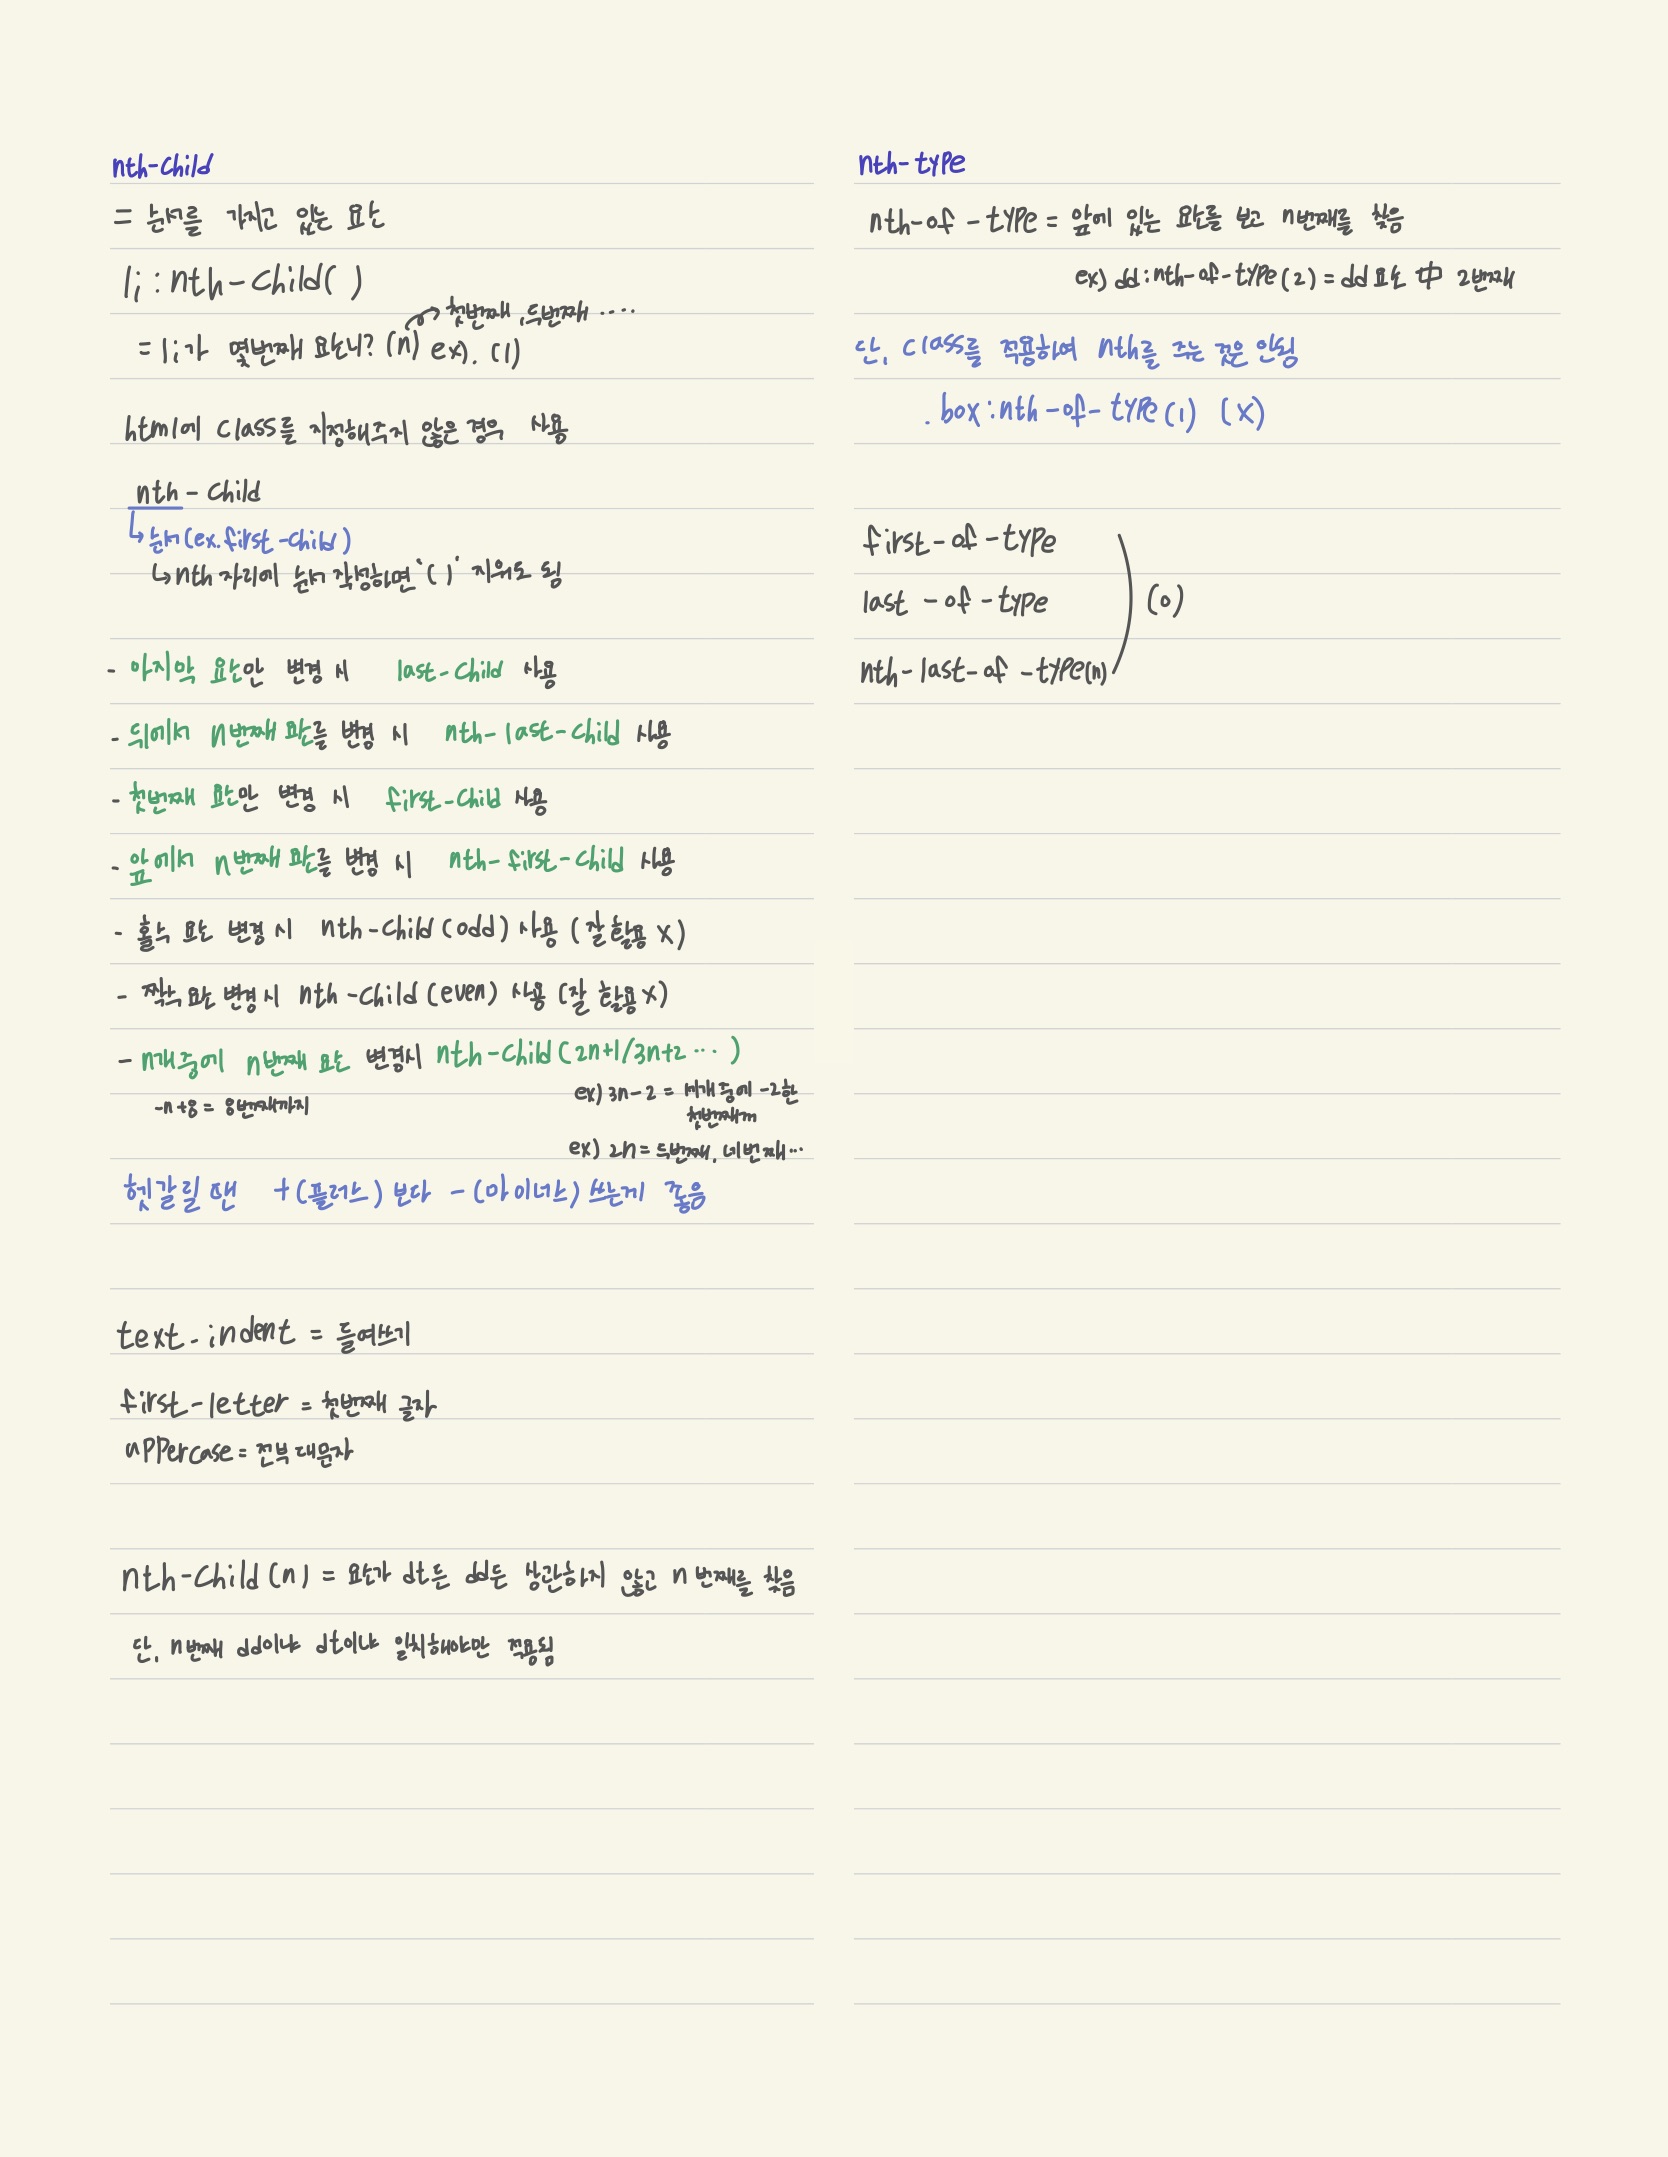 nth-child
= 순서를 가지고 있는 요소
li : nth-child( )
첫번째, 두번째 ....
= li가 몇번째 요소니? (n) ex). (1)
html에 class를 지정해주지 않은 경우 사용
nth - child
↳ 순서(ex.first-child)
↳ nth 자리에 순서 작성하면 '( )' 지워도 됨
- 마지막 요소만 변경 시 last-child 사용
- 뒤에서 n번째 요소를 변경 시 nth-last-child 사용
- 첫번째 요소만 변경 시 first-child 사용
- 앞에서 n번째 요소를 변경 시 nth-first-child 사용
- 홀수 요소 변경 시 nth-child(odd) 사용 (잘 활용 X)
- 짝수 요소 변경 시 nth-child(even) 사용 (잘 활용 X)
- n개 중에 n번째 요소 변경시 nth-child(2n+1/3n+2 ... )
-n+8 = 8번째까지
ex) 3n-2 = 세개 중에 -2한
첫번째
ex) 2n = 두번째, 네번째...
헷갈릴 땐 +(플러스) 보다 -(마이너스) 쓰는게 좋음
text-indent = 들여쓰기
first-letter = 첫번째 글자
uppercase = 전부 대문자
nth-child(n) = 요소가 dt든 dd든 상관하지 않고 n번째를 찾음
단, n번째 dd이냐 dt이냐 일치해야만 적용됨
nth-type
nth-of-type = 앞에 있는 요소를 보고 n번째를 찾음
ex) dd:nth-of-type(2) = dd 요소 中 2번째
단, class를 적용하여 nth를 주는 것은 안됨
.box:nth-of-type(1) (X)
first-of-type
last-of-type (O)
nth-last-of-type(n)